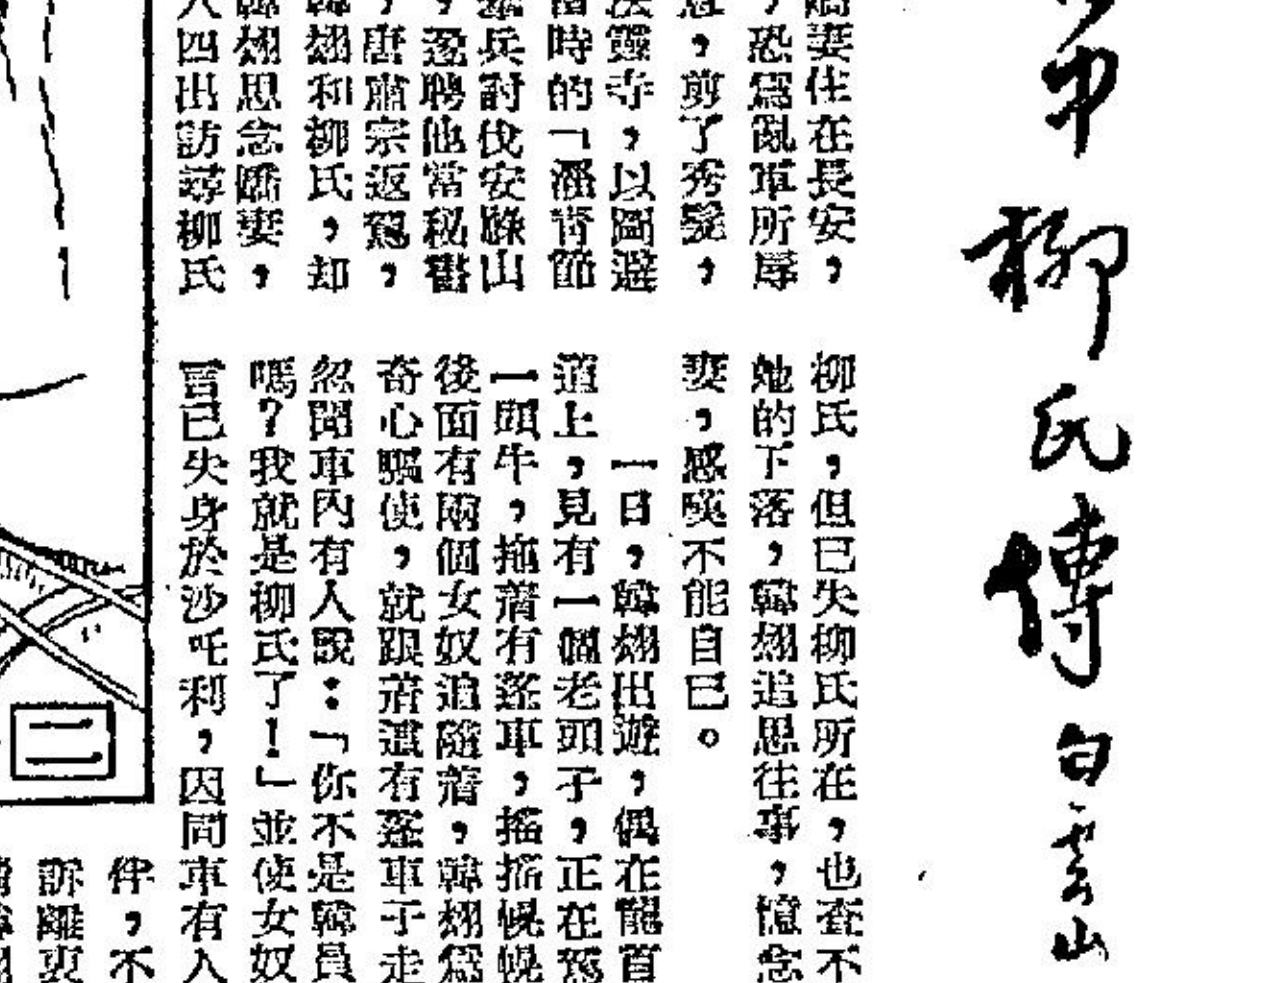 中柳氏傳 白雲山
嬌妻住在長安,
,恐爲亂軍所辱
,剪了秀髮,
靈寺,以圖避
時的「淄青節
兵討伐安祿山
,遂聘他當秘書
,唐肅宗返駕,
韓翃和柳氏,却
韓翃思念嬌妻,
人四出訪尋柳氏
柳氏,但已失柳氏所在,也查不
她的下落,韓翃追思往事,憶念
妻,感嘆不能自已。
一日,韓翃出遊,偶在龍首
道上,見有一個老頭子,正在駕
一頭牛,拖着有蓬車,搖搖幌幌
後面有兩個女奴追隨着,韓翃爲
奇心驅使,就跟着這有蓬車子走
忽聞車內有人說:「你不是韓員
嗎?我就是柳氏了!」並使女奴
言已失身於沙吒利,因同車有人
伴,不
訴離衷
二